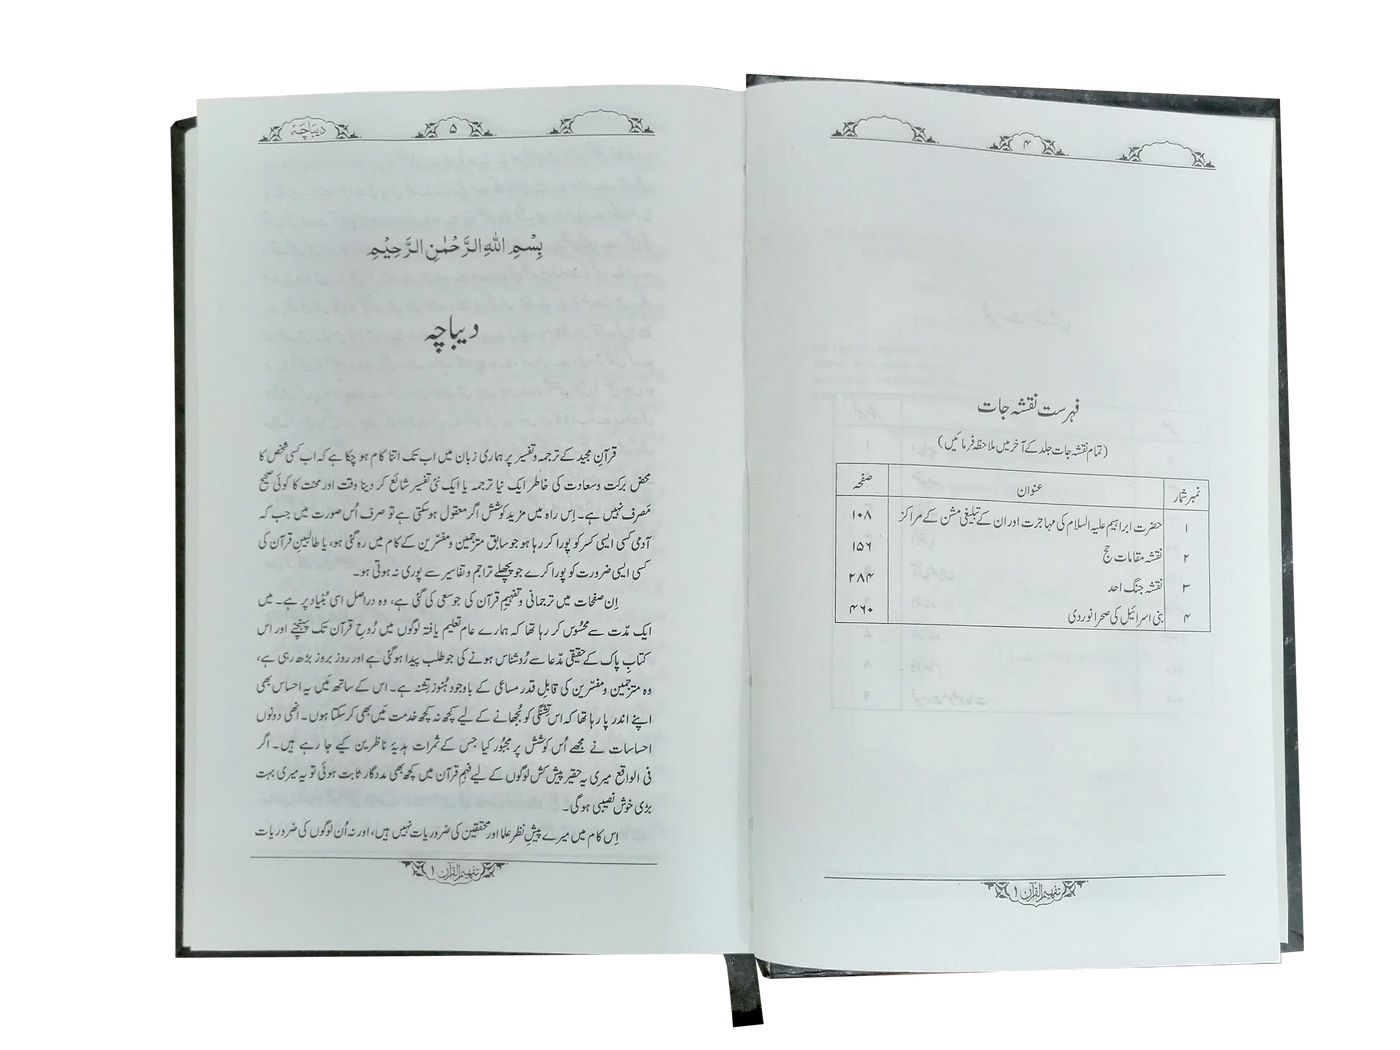 ۴
فہرست نقشہ جات
(تمام نقشہ جات جلد کے آخر میں ملاحظہ فرمائیں)
نمبر شمار عنوان صفحہ
۱ حضرت ابراہیم علیہ السلام کی مہاجرت اور ان کے تبلیغی مشن کے مراکز ۱۰۸
۲ نقشہ مقامات حج ۱۵۶
۳ نقشہ جنگ احد ۲۸۴
۴ بنی اسرائیل کی صحرا نوردی ۴۶۰
تفہیم القرآن ۱
۵ دیباچہ
بِسْمِ اللّٰهِ الرَّحْمٰنِ الرَّحِيْمِ
دیباچہ
قرآنِ مجید کے ترجمہ و تفسیر پر ہماری زبان میں اب تک اتنا کام ہو چکا ہے کہ اب کسی شخص کا
محض برکت و سعادت کی خاطر ایک نیا ترجمہ یا ایک نئی تفسیر شائع کر دینا وقت اور محنت کا کوئی صحیح
مَصرف نہیں ہے۔ اِس راہ میں مزید کوشش اگر معقول ہو سکتی ہے تو صرف اُس صورت میں جب کہ
آدمی کسی ایسی کسر کو پورا کر رہا ہو جو سابق مترجمین و مفسّرین کے کام میں رہ گئی ہو، یا طالبینِ قرآن کی
کسی ایسی ضرورت کو پورا کرے جو پچھلے تراجم و تفاسیر سے پوری نہ ہوتی ہو۔
اِن صفحات میں ترجمانی و تفہیمِ قرآن کی جو سعی کی گئی ہے، وہ دراصل اسی بُنیاد پر ہے۔ میں
ایک مدّت سے محسُوس کر رہا تھا کہ ہمارے عام تعلیم یافتہ لوگوں میں رُوحِ قرآن تک پہنچنے اور اس
کتابِ پاک کے حقیقی مدّعا سے رُوشناس ہونے کی جو طلب پیدا ہو گئی ہے اور روز بروز بڑھ رہی ہے،
وہ مترجمین و مفسّرین کی قابلِ قدر مساعی کے باوجود ہُنوز تِشنہ ہے۔ اس کے ساتھ مَیں یہ احساس بھی
اپنے اندر پا رہا تھا کہ اس تِشنگی کو بُجھانے کے لیے کچھ نہ کچھ خدمت مَیں بھی کر سکتا ہوں۔ انھی دونوں
احساسات نے مجھے اُس کوشش پر مجبُور کیا جس کے ثمرات ہدیۂ ناظرین کیے جا رہے ہیں۔ اگر
فی الواقع میری یہ حقیر پیش کش لوگوں کے لیے فہمِ قرآن میں کچھ بھی مددگار ثابت ہوئی تو یہ میری بہت
بڑی خوش نصیبی ہو گی۔
اِس کام میں میرے پیشِ نظر علما اور محققین کی ضروریات نہیں ہیں، اور نہ اُن لوگوں کی ضروریات
تفہیم القرآن ۱